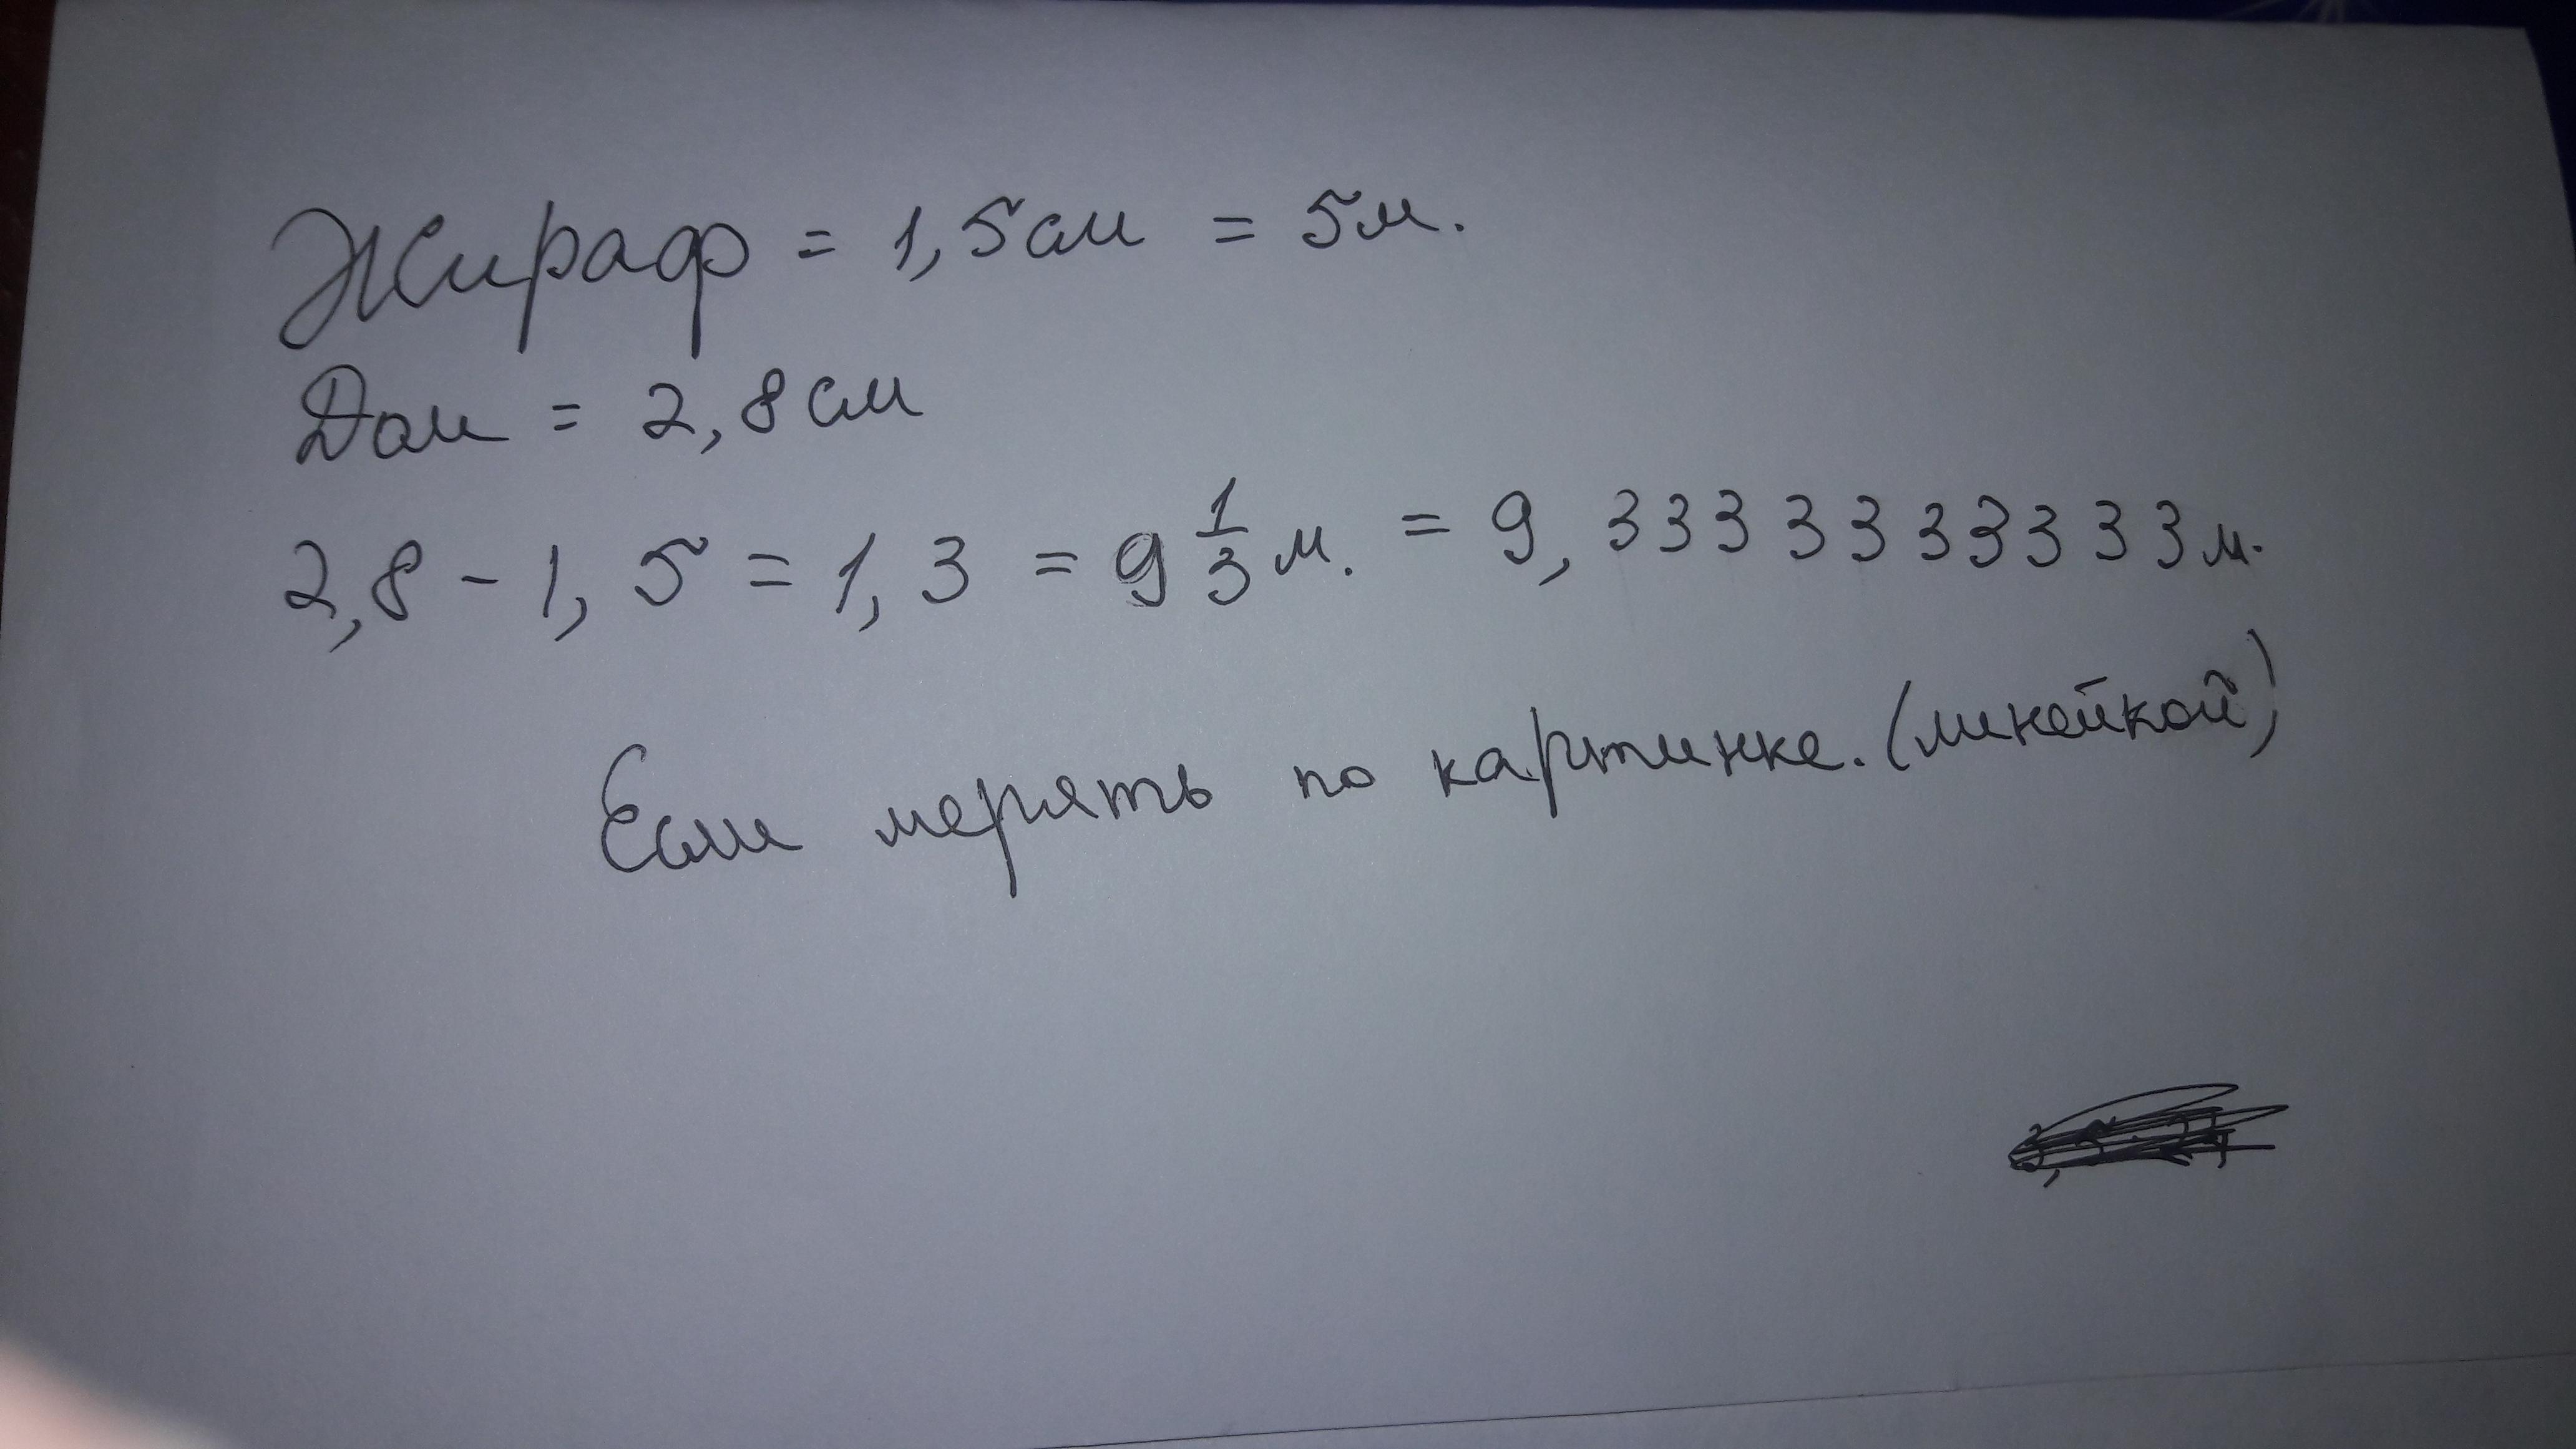 Жираф = 1,5см = 5м.
Дом = 2,8см
2,8 - 1,5 = 1,3 = 9 1/3 м. = 9,3333333333м.
Если мерять по картинке. (линейкой)